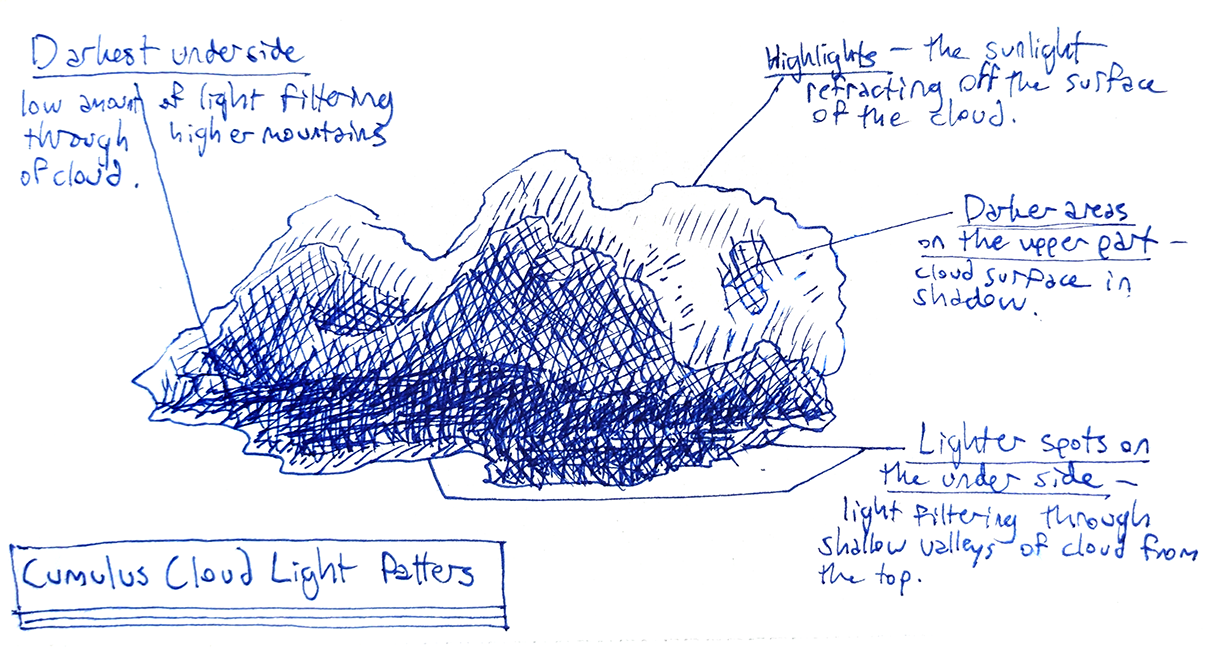 Darkest underside
low amount of light filtering
through higher mountains
of cloud.
Highlights – the sunlight
refracting off the surface
of the cloud.
Darker areas
on the upper part –
cloud surface in
shadow.
Lighter spots on
the under side –
light filtering through
shallow valleys of cloud from
the top.
Cumulus Cloud Light Patters